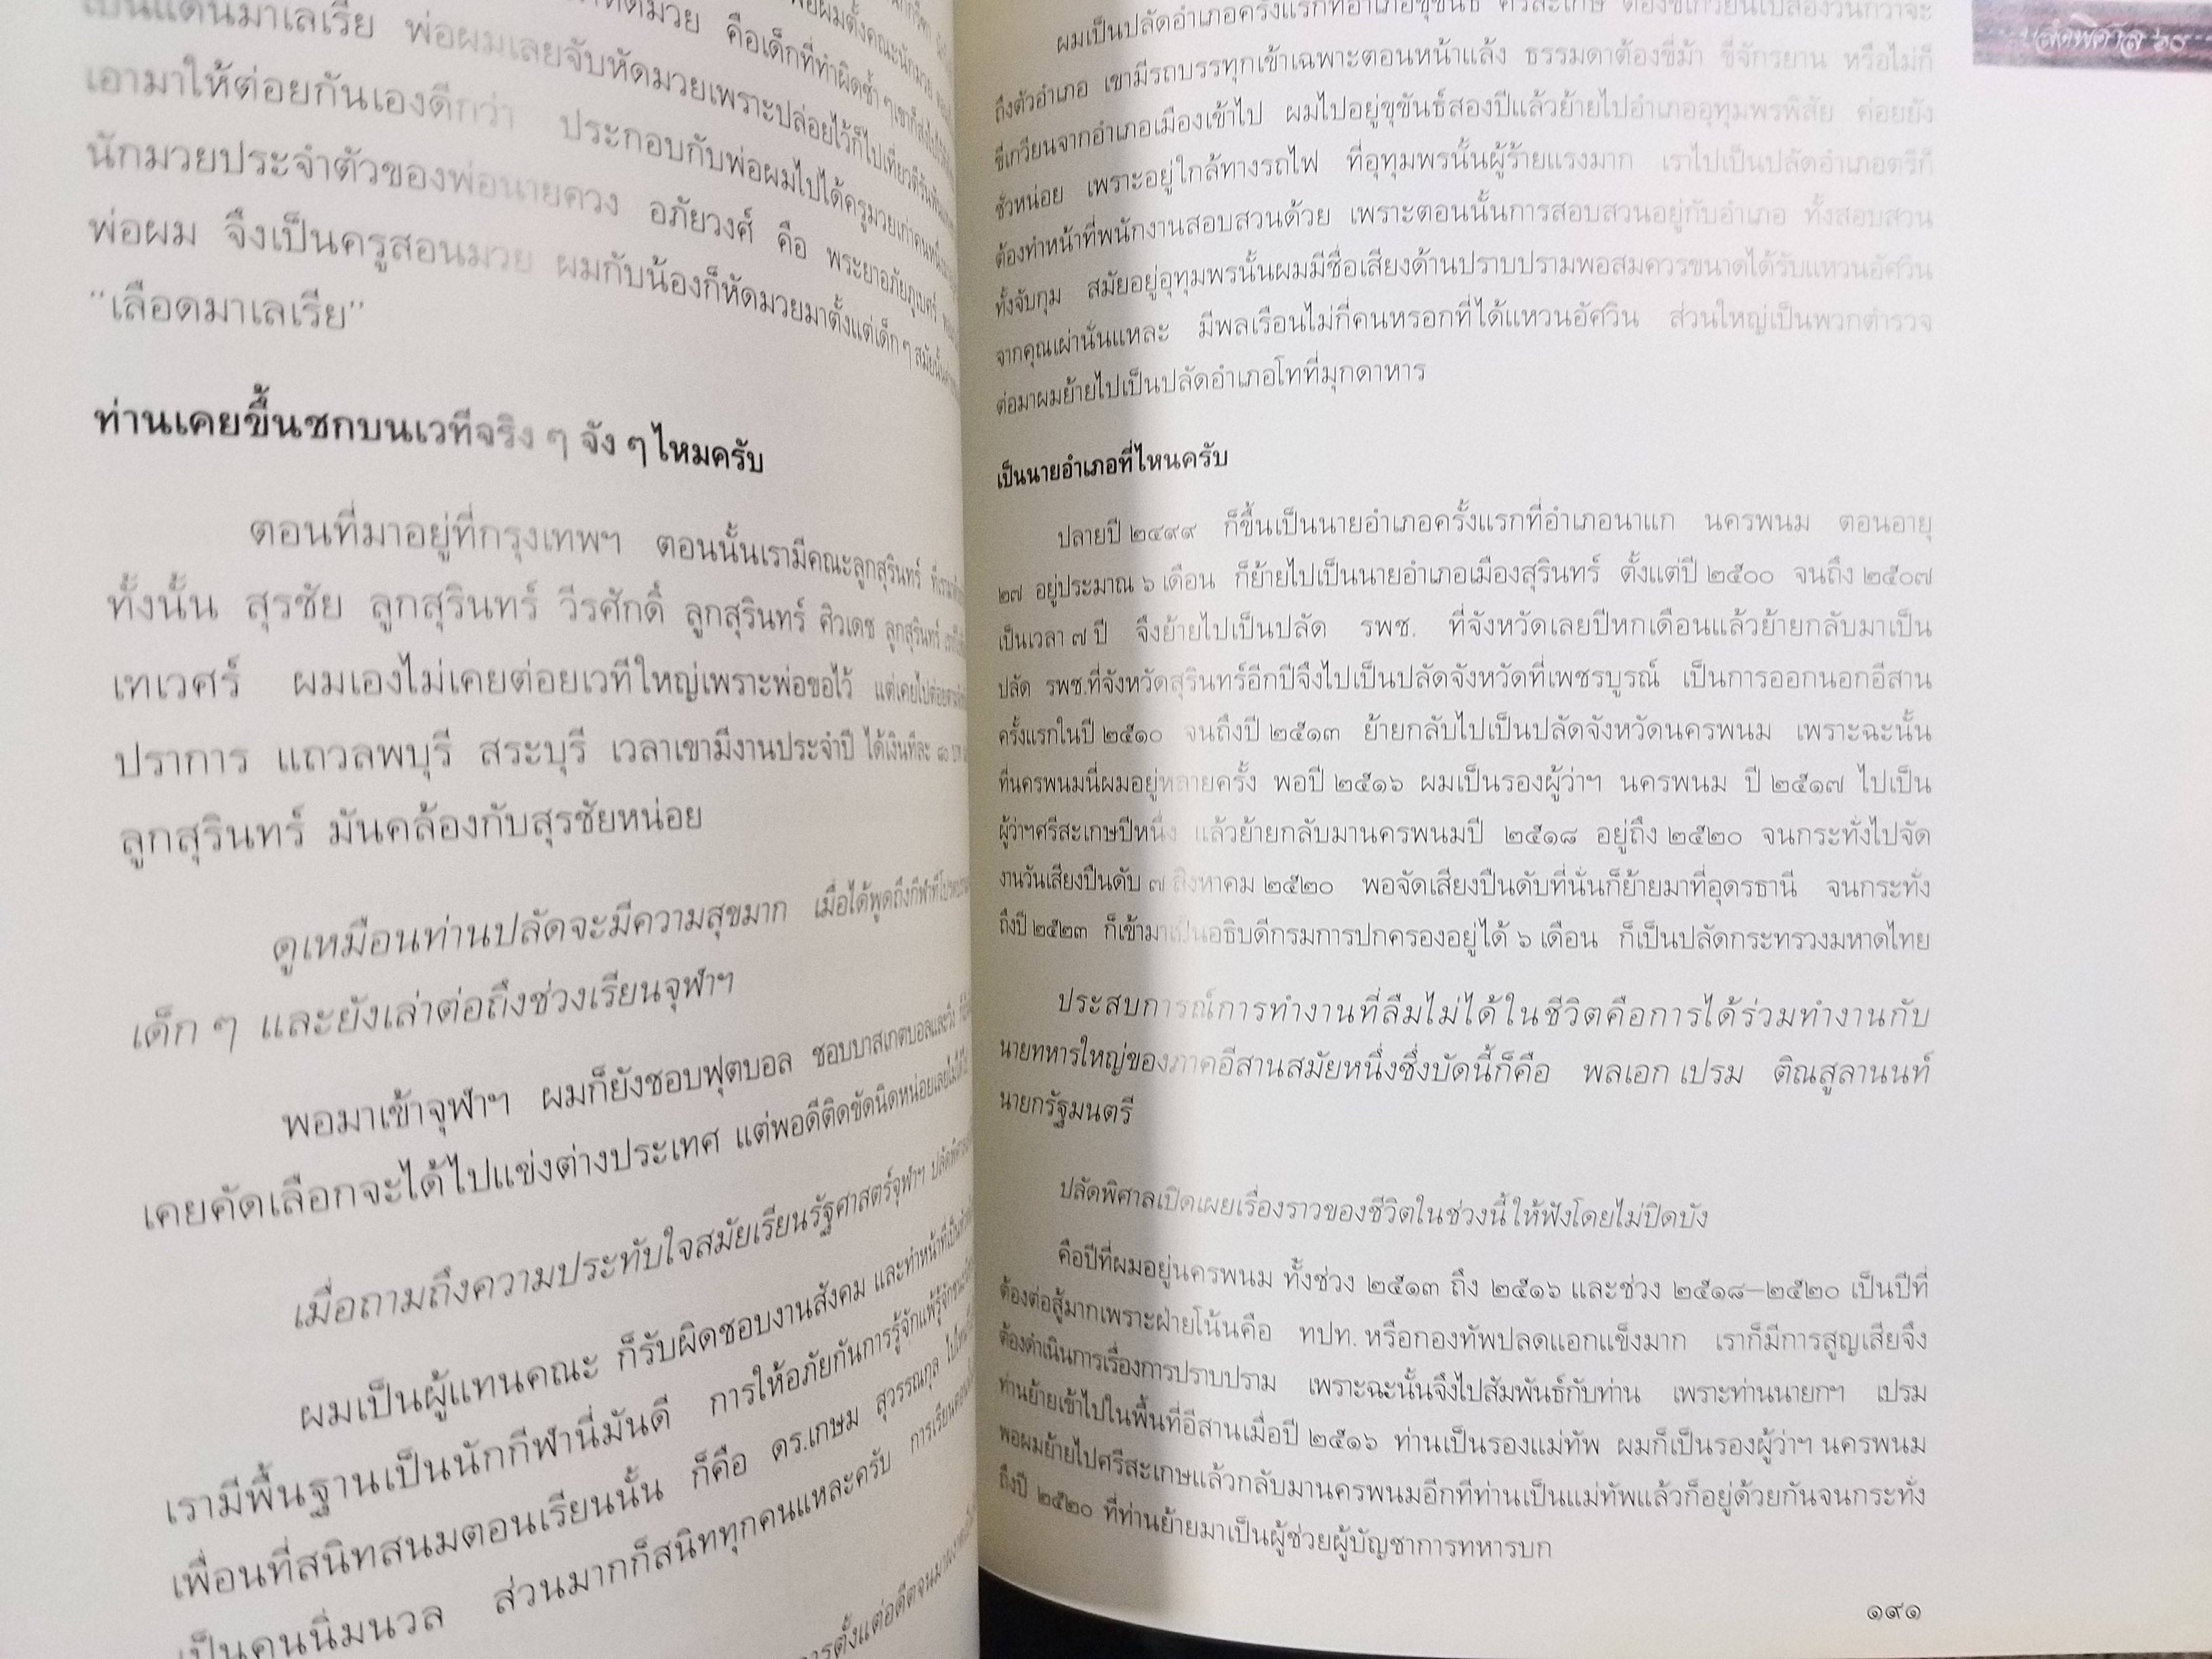 เป็นแดนมาเลเรีย พ่อผมเลยจับหัดมวยเพราะปล่อยไว้ก็ไปเที่ยวตีรัน
เอามาให้ต่อยกันเองดีกว่า ประกอบกับพ่อผมไปได้ครูมวยเก่าคนหนึ่ง
นักมวยประจำตัวของพ่อนายควง อภัยวงศ์ คือ พระยาอภัยภูเบศร์
พ่อผม จึงเป็นครูสอนมวย ผมกับน้องก็หัดมวยมาตั้งแต่เด็ก ๆ สมัยนั้น
“เลือดมาเลเรีย”
ท่านเคยขึ้นชกบนเวทีจริง ๆ จัง ๆ ไหมครับ
ตอนที่มาอยู่ที่กรุงเทพฯ ตอนนั้นเรามีคณะลูกสุรินทร์
ทั้งนั้น สุรชัย ลูกสุรินทร์ วีรศักดิ์ ลูกสุรินทร์ ศิวเดช ลูกสุรินทร์
เทเวศร์ ผมเองไม่เคยต่อยเวทีใหญ่เพราะพ่อขอไว้ แต่เคยไปต่อย
ปราการ แถวลพบุรี สระบุรี เวลาเขามีงานประจำปี ได้เงินทีละ
ลูกสุรินทร์ มันคล้องกับสุรชัยหน่อย
ดูเหมือนท่านปลัดจะมีความสุขมาก เมื่อได้พูดถึงกีฬาที่โปรดปราน
เด็ก ๆ และยังเล่าต่อถึงช่วงเรียนจุฬาฯ
พอมาเข้าจุฬาฯ ผมก็ยังชอบฟุตบอล ชอบบาสเกตบอลและวิ่ง
เคยคัดเลือกจะได้ไปแข่งต่างประเทศ แต่พอดีติดขัดนิดหน่อยเลยไม่ได้ไป
เมื่อถามถึงความประทับใจสมัยเรียนรัฐศาสตร์จุฬาฯ
ผมเป็นผู้แทนคณะ ก็รับผิดชอบงานสังคม และทำหน้าที่เป็น
เรามีพื้นฐานเป็นนักกีฬานี่มันดี การให้อภัยกันการรู้จักแพ้รู้จักชนะ
เพื่อนที่สนิทสนมตอนเรียนนั้น ก็คือ ดร.เกษม สุวรรณกุล
เป็นคนนิ่มนวล ส่วนมากก็สนิททุกคนแหละครับ การเรียน
การตั้งแต่อดีตจนมา
ปลัดพิศาล ๖๐
ผมเป็นปลัดอำเภอครั้งแรกที่อำเภอขุขันธ์ ศรีสะเกษ ต้องขี่เกวียนไปสองวันกว่าจะ
ถึงตัวอำเภอ เขามีรถบรรทุกเข้าเฉพาะตอนหน้าแล้ง ธรรมดาต้องขี่ม้า ขี่จักรยาน หรือไม่ก็
ขี่เกวียนจากอำเภอเมืองเข้าไป ผมไปอยู่ขุขันธ์สองปีแล้วย้ายไปอำเภออุทุมพรพิสัย ค่อยยัง
ชั่วหน่อย เพราะอยู่ใกล้ทางรถไฟ ที่อุทุมพรนั้นผู้ร้ายแรงมาก เราไปเป็นปลัดอำเภอตรีก็
ต้องทำหน้าที่พนักงานสอบสวนด้วย เพราะตอนนั้นการสอบสวนอยู่กับอำเภอ ทั้งสอบสวน
ทั้งจับกุม สมัยอยู่อุทุมพรนั้นผมมีชื่อเสียงด้านปราบปรามพอสมควรขนาดได้รับแหวนอัศวิน
จากคุณเผ่านั่นแหละ มีพลเรือนไม่กี่คนหรอกที่ได้แหวนอัศวิน ส่วนใหญ่เป็นพวกตำรวจ
ต่อมาผมย้ายไปเป็นปลัดอำเภอโทที่มุกดาหาร
เป็นนายอำเภอที่ไหนครับ
ปลายปี ๒๔๙๙ ก็ขึ้นเป็นนายอำเภอครั้งแรกที่อำเภอนาแก นครพนม ตอนอายุ
๒๗ อยู่ประมาณ ๖ เดือน ก็ย้ายไปเป็นนายอำเภอเมืองสุรินทร์ ตั้งแต่ปี ๒๕๐๐ จนถึง ๒๕๐๗
เป็นเวลา ๗ ปี จึงย้ายไปเป็นปลัด รพช. ที่จังหวัดเลยปีหกเดือนแล้วย้ายกลับมาเป็น
ปลัด รพช.ที่จังหวัดสุรินทร์อีกปีจึงไปเป็นปลัดจังหวัดที่เพชรบูรณ์ เป็นการออกนอกอีสาน
ครั้งแรกในปี ๒๕๑๐ จนถึงปี ๒๕๑๓ ย้ายกลับไปเป็นปลัดจังหวัดนครพนม เพราะฉะนั้น
ที่นครพนมนี่ผมอยู่หลายครั้ง พอปี ๒๕๑๖ ผมเป็นรองผู้ว่าฯ นครพนม ปี ๒๕๑๗ ไปเป็น
ผู้ว่าฯศรีสะเกษปีหนึ่ง แล้วย้ายกลับมานครพนมปี ๒๕๑๘ อยู่ถึง ๒๕๒๐ จนกระทั่งไปจัด
งานวันเสียงปืนดับ ๗ สิงหาคม ๒๕๒๐ พอจัดเสียงปืนดับที่นั่นก็ย้ายมาที่อุดรธานี จนกระทั่ง
ถึงปี ๒๕๒๓ ก็เข้ามาเป็นอธิบดีกรมการปกครองอยู่ได้ ๖ เดือน ก็เป็นปลัดกระทรวงมหาดไทย
ประสบการณ์การทำงานที่ลืมไม่ได้ในชีวิตคือการได้ร่วมทำงานกับ
นายทหารใหญ่ของภาคอีสานสมัยหนึ่งซึ่งบัดนี้ก็คือ พลเอก เปรม ติณสูลานนท์
นายกรัฐมนตรี
ปลัดพิศาลเปิดเผยเรื่องราวของชีวิตในช่วงนี้ให้ฟังโดยไม่ปิดบัง
คือปีที่ผมอยู่นครพนม ทั้งช่วง ๒๕๑๓ ถึง ๒๕๑๖ และช่วง ๒๕๑๘–๒๕๒๐ เป็นปีที่
ต้องต่อสู้มากเพราะฝ่ายโน้นคือ ทปท. หรือกองทัพปลดแอกแข็งมาก เราก็มีการสูญเสียจึง
ต้องดำเนินการเรื่องการปราบปราม เพราะฉะนั้นจึงไปสัมพันธ์กับท่าน เพราะท่านนายกฯ เปรม
ท่านย้ายเข้าไปในพื้นที่อีสานเมื่อปี ๒๕๑๖ ท่านเป็นรองแม่ทัพ ผมก็เป็นรองผู้ว่าฯ นครพนม
พอผมย้ายไปศรีสะเกษแล้วกลับมานครพนมอีกทีท่านเป็นแม่ทัพแล้วก็อยู่ด้วยกันจนกระทั่ง
ถึงปี ๒๕๒๐ ที่ท่านย้ายมาเป็นผู้ช่วยผู้บัญชาการทหารบก
๑๙๑